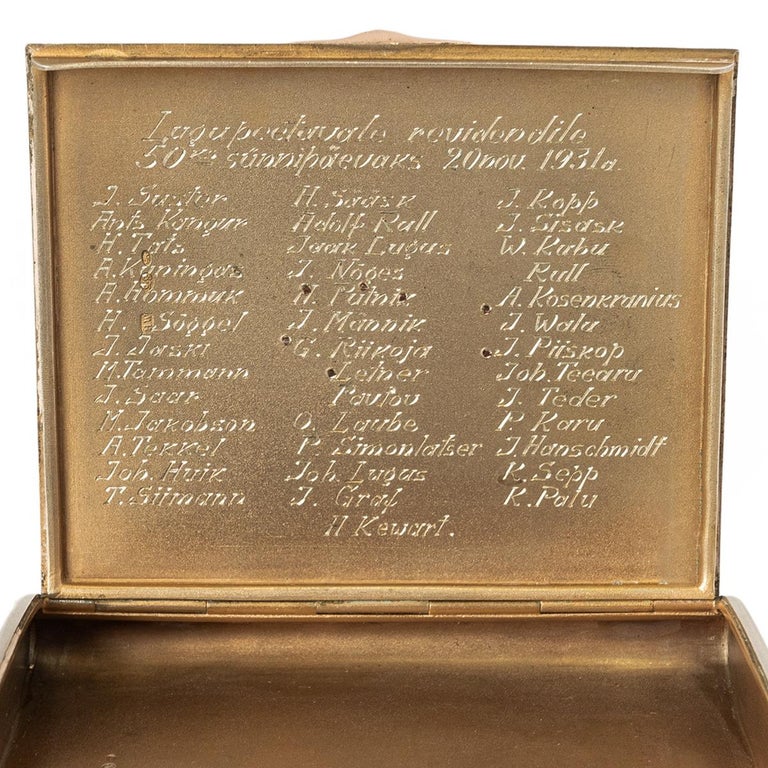 Lagupeetavale revidendile
50ne sünnipäevaks 20 nov. 1931a.
J. Suster
Ants Kangur
H. Tats
A. Kaningas
A. Hommuk
H. Söggel
J. Jaski
M. Tammann
J. Saar
M. Jakobson
A. Tekkel
Joh. Huik
T. Siimann
H. Sääsk
Adolf Rall
Jaak Lugus
J. Nõges
H. Patnik
J. Männik
G. Riikoja
Leiner
Pavlov
O. Laube
P. Simonlatser
Joh. Lugus
J. Graf
J. Kopp
J. Sisask
W. Kubu
Rull
A. Rosenkranius
J. Wala
J. Piiskop
Joh. Teearu
J. Teder
P. Karu
J. Hanschmidt
K. Sepp
K. Palu
H Kewart.